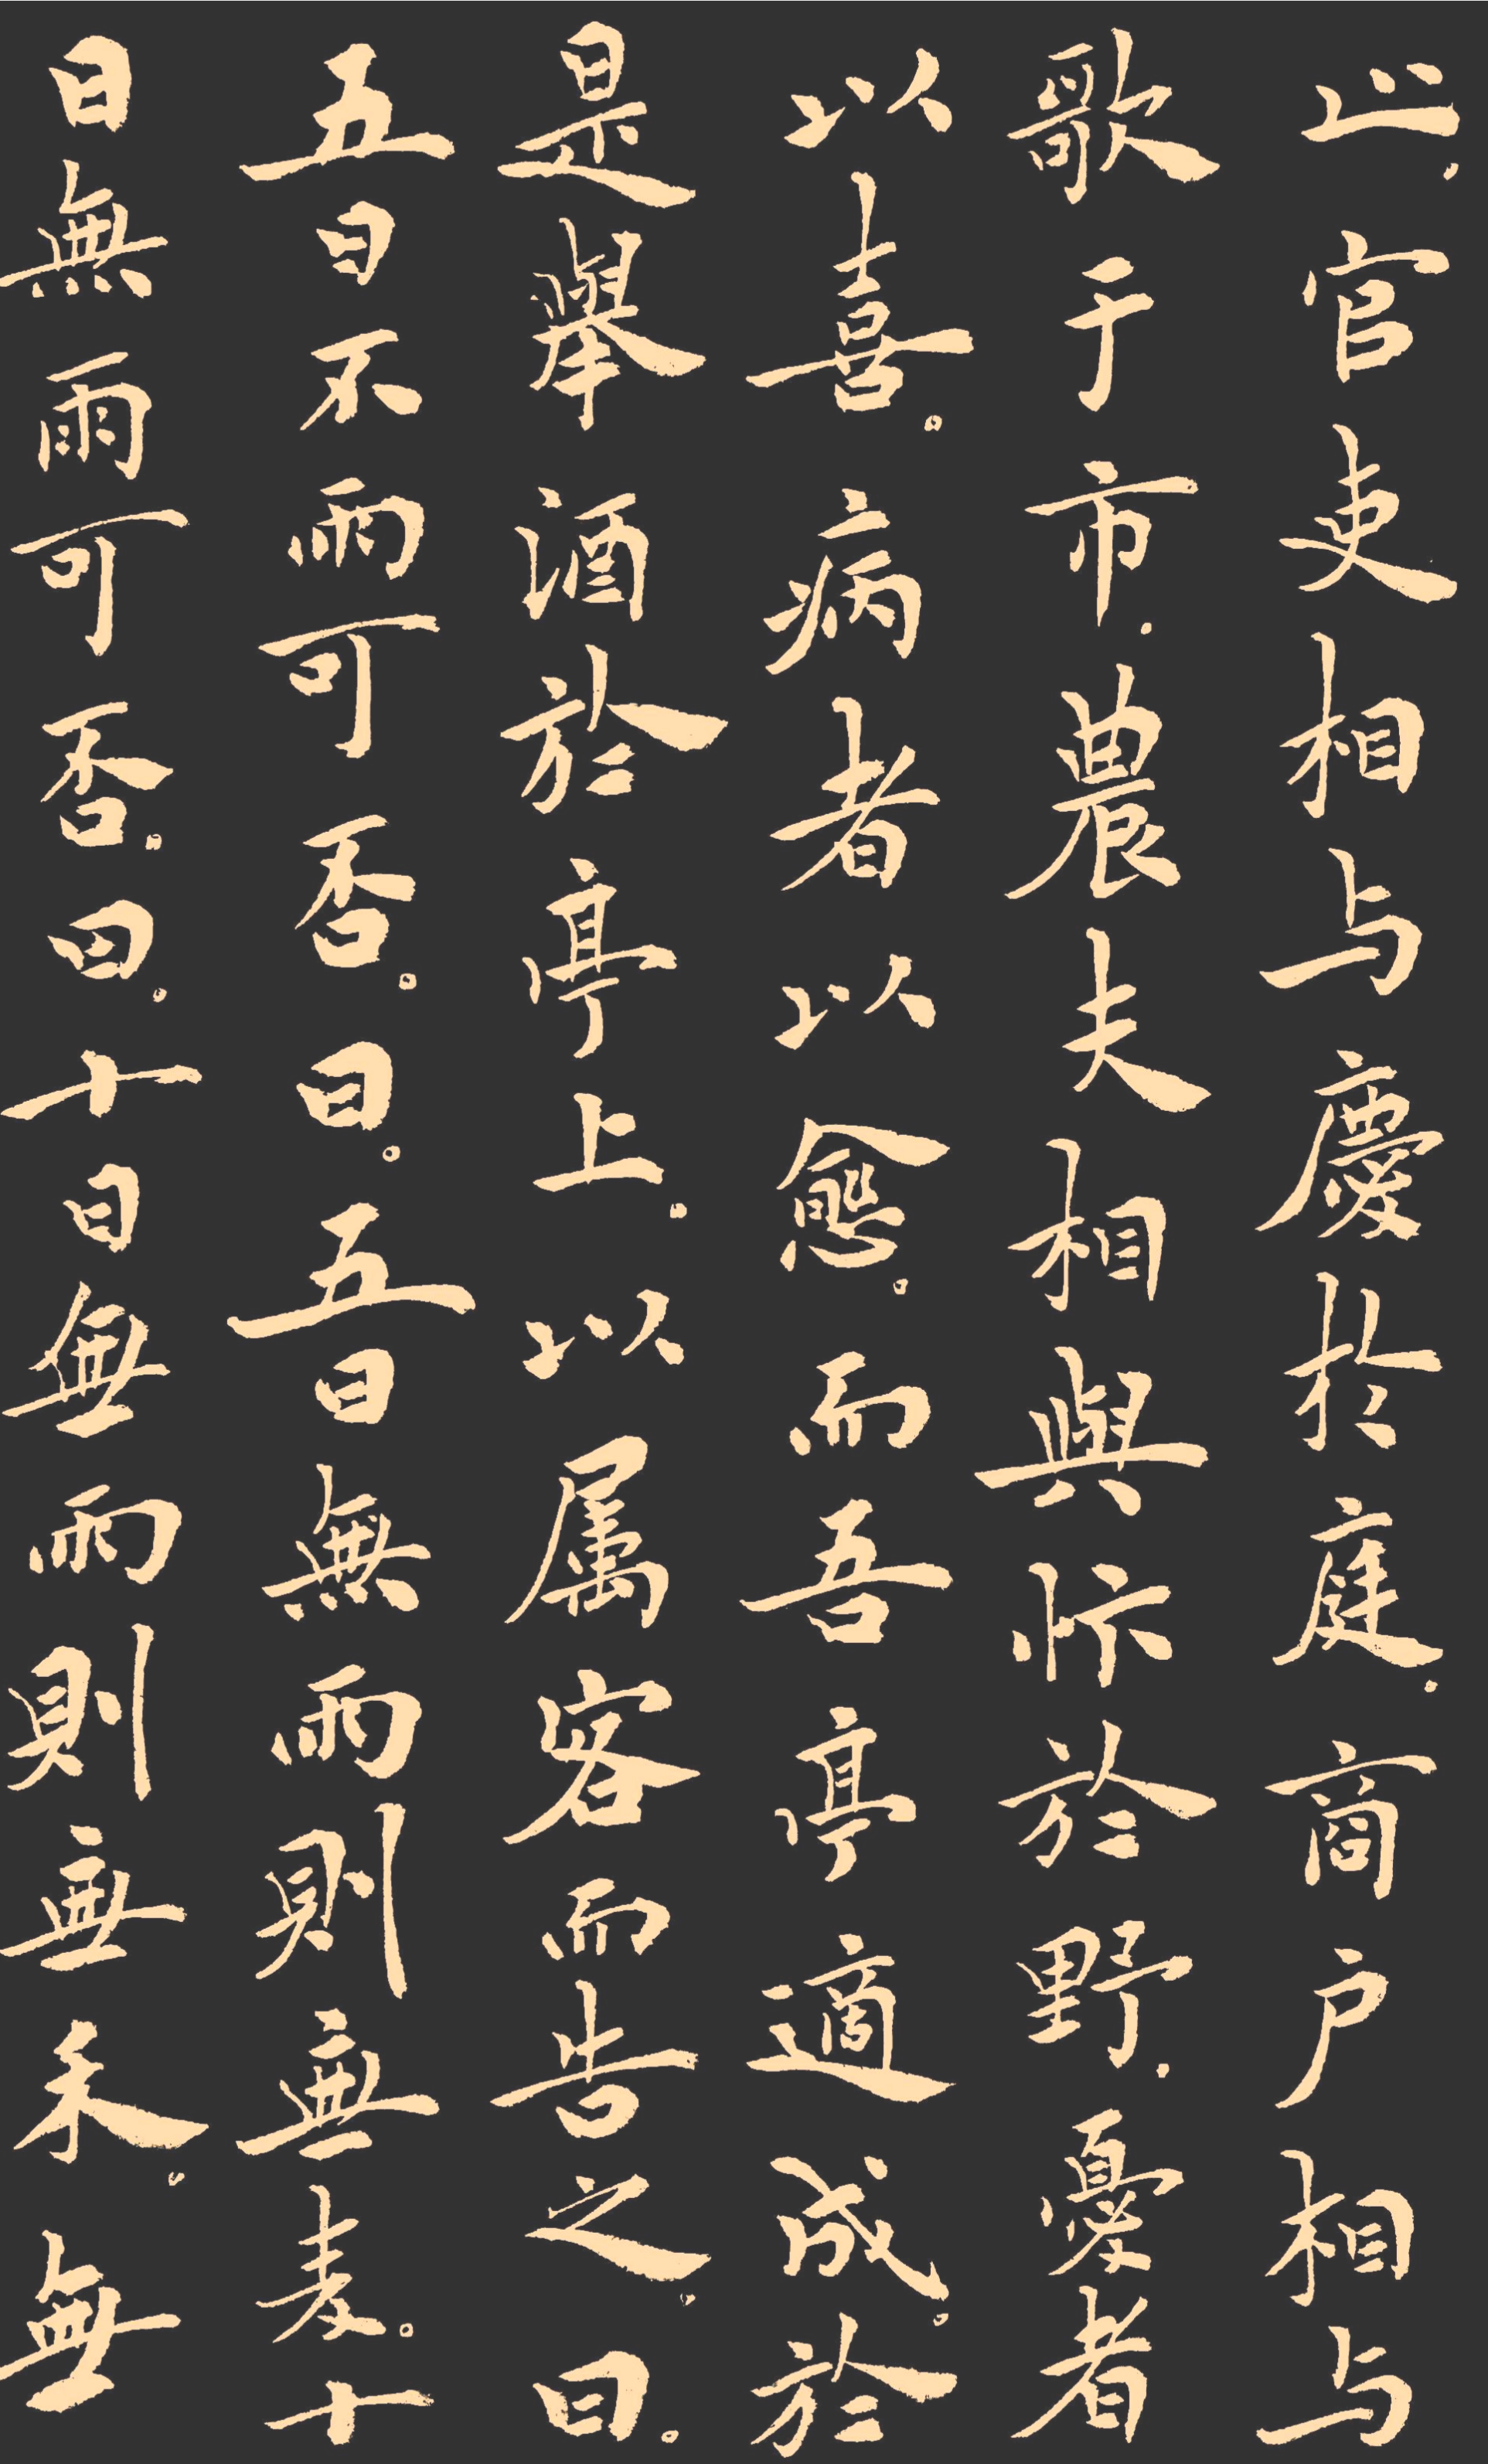 止。官吏相与慶於庭。商户相与
歌于市。農夫相與忭於野。憂者
以喜。病者以愈。而吾亭適成。於
是舉酒於亭上。以属客而告之。曰。
五日不雨可否。曰。五日無雨則無麦。十
日無雨可否。曰。十日無雨則無禾。無